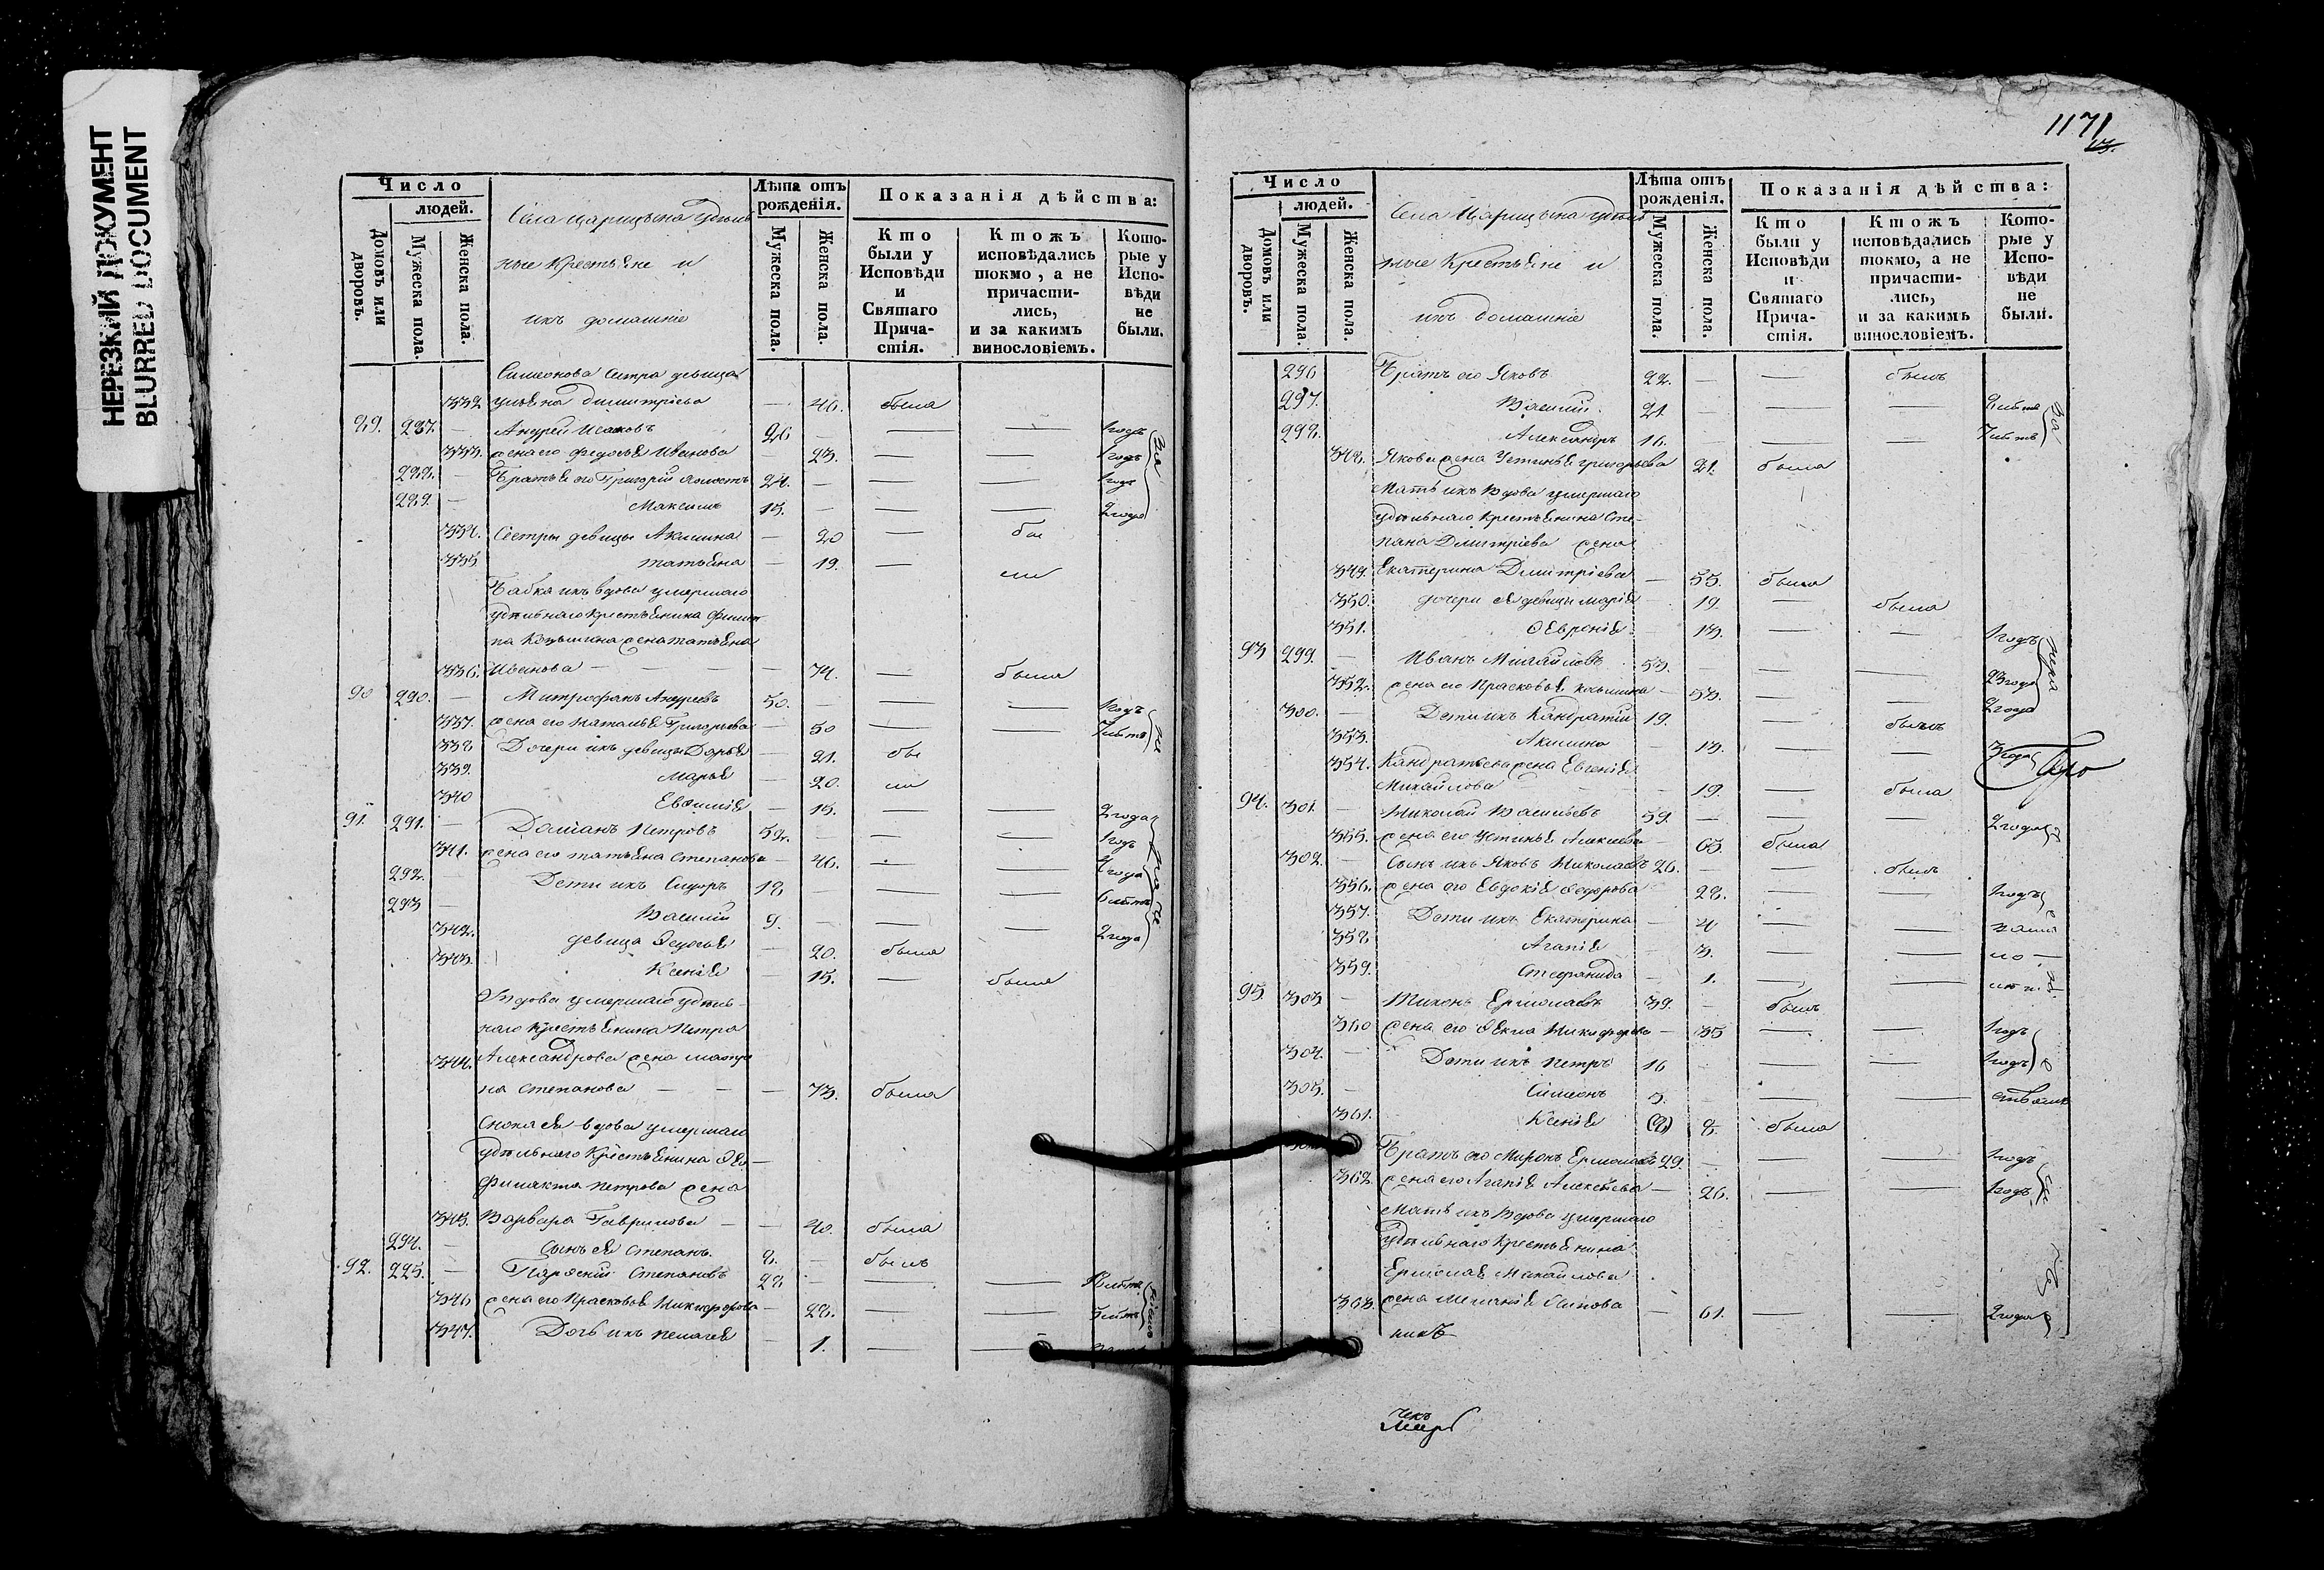 НЕРЕЗКИЙ ДОКУМЕНТ
BLURRED DOCUMENT
Число
людей.
Домовъ или дворовъ.
Мужеска пола.
Женска пола.
Села Царицына удѣль
ные Крестьяне и
ихъ домашніе
Лѣта отъ рожденія.
Мужеска пола.
Женска пола.
Показанія дѣйства:
Кто были у Исповѣди и Святаго Причастія.
Ктожъ исповѣдались токмо, а не причастились, и за какимъ винословіемъ.
Которые у Исповѣди не были.
Симеонова Сестра девица
332 Ульяна Димитріева — 46. была
89. 287. — Андрей Исаковъ 26 — — — 1 годъ
333. жена его Федосья Иванова — 23. — — 1 годъ
288. — Братья его Григорій 24. — — — 1 годъ
289. — Максимъ 15. — — — 2 года
334. Сестры девицы Акилина — 20 — бы
335 татьяна — 19. — ли
Бабка ихъ вдова умершаго
удѣльнаго Крестьянина Филип
па Козьмина жена татьяна
336. Иванова — — 74. — была
90 290. — Митрофанъ Андреевъ 50. — — — 1 годъ
337. жена его Наталья Григорьева — 50 — — 7 летъ
338 Дочери ихъ девицы Дарья — 21. бы
339. Марья — 20. ли
340 Евфимія — 15. — — 2 года
91. 291. — Даміанъ Петровъ 52. — — — 1 годъ
341. жена его татьяна Степанова — 46. — — 4 года
292. — Дети ихъ Сидоръ 18 — — — 6 летъ
293 — Василій 9. — — — 2 года
342. девица Федосья — 20. была
343. Ксенія — 15. — была
вдова умершаго удѣль-
наго Крестьянина Петра
344. Александрова жена матро
на Степанова — — — 73. была
Сноха ея вдова умершаго
удѣльнаго Крестьянина Фео-
филакта Петрова жена
345. Варвара Гаврилова — — 40. была
294. — Сынъ ея Степанъ. 8. — былъ
92. 225. — Степановъ 28 — — —
346 жена его Прасковья Никифорова — 28. — — 5 летъ
347. Дочь ихъ Пелагея — 1. — —
1171
Число
людей.
Домовъ или дворовъ.
Мужеска пола.
Женска пола.
Села Царицына удѣль
ные Крестьяне и
ихъ домашніе
Лѣта отъ рожденія.
Мужеска пола.
Женска пола.
Показанія дѣйства:
Кто были у Исповѣди и Святаго Причастія.
Ктожъ исповѣдались токмо, а не причастились, и за какимъ винословіемъ.
Которые у Исповѣди не были.
296 Братъ его Яковъ 22. — — былъ
297. Василій. 21. — — —
298. Александръ 16. — — — 7 летъ
348. Якова жена Устинья Григорьева 21. была
Мать ихъ вдова умершаго
удѣльнаго Крестьянина Сте-
пана Димитріева жена
349. Екатерина Димитріева — 55. была
350. дочери ея девицы Марія — 19. — была
351. Февронія — 13. — — 1 годъ
93 299. — Иванъ Михайловъ 53. — — —
352. жена его Прасковья — 53. — — 2 года
300. — Дети ихъ Кандратій 19. — былъ
353. Акилина — 13. — — 3 года
354. Кандратьева жена Евгенія
Михайлова — 19. — была
94. 301. — Николай Васильевъ 59. — — — 2 года
355. жена его Устинья Алексеева — 63. была
302. — Сынъ ихъ Яковъ Николаевъ 26. — — былъ
356. жена его Евдокія Федорова — 28. — — 1 годъ
357. Дети ихъ Екатерина — 4 — —
358 Агапія — 3. — —
359. Стефанида — 1. — —
95. 303 — Тихонъ Ермолаевъ 39. — былъ
360 жена его Фекла Никифорова — 35 — — 1 годъ
304. — Дети ихъ Петръ 16 — — — 1 годъ
305. — Симеонъ 5. — — —
361. Ксенія (8) 8. была
Братъ его Миронъ Ермолаевъ 29. — — — 1 годъ
362. жена его Агапія Алексеева — 26. — — 1 годъ
Мать ихъ вдова умершаго
удѣльнаго Крестьянина
Ермолая Михайлова
363. жена — 61. — — 2 года